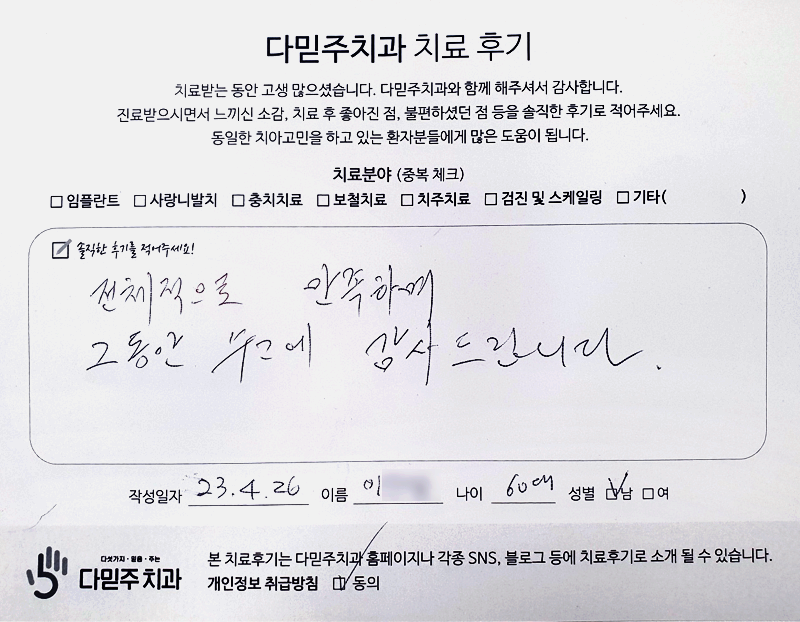 다믿주치과 치료 후기
치료받는 동안 고생 많으셨습니다. 다믿주치과와 함께 해주셔서 감사합니다.
진료받으시면서 느끼신 소감, 치료 후 좋아진 점, 불편하셨던 점 등을 솔직한 후기로 적어주세요.
동일한 치아고민을 하고 있는 환자분들에게 많은 도움이 됩니다.
치료분야 (중복 체크)
☐ 임플란트 ☐ 사랑니발치 ☐ 충치치료 ☐ 보철치료 ☐ 치주치료 ☐ 검진 및 스케일링 ☐ 기타( )
솔직한 후기를 적어주세요!
전체적으로 만족하며
그동안 감사드립니다.
작성일자 23.4.26 이름 이 나이 60대 성별 ☑남 ☐여
다섯가지·믿음·주는
다믿주치과
본 치료후기는 다믿주치과 홈페이지나 각종 SNS, 블로그 등에 치료후기로 소개 될 수 있습니다.
개인정보 취급방침 ☑ 동의